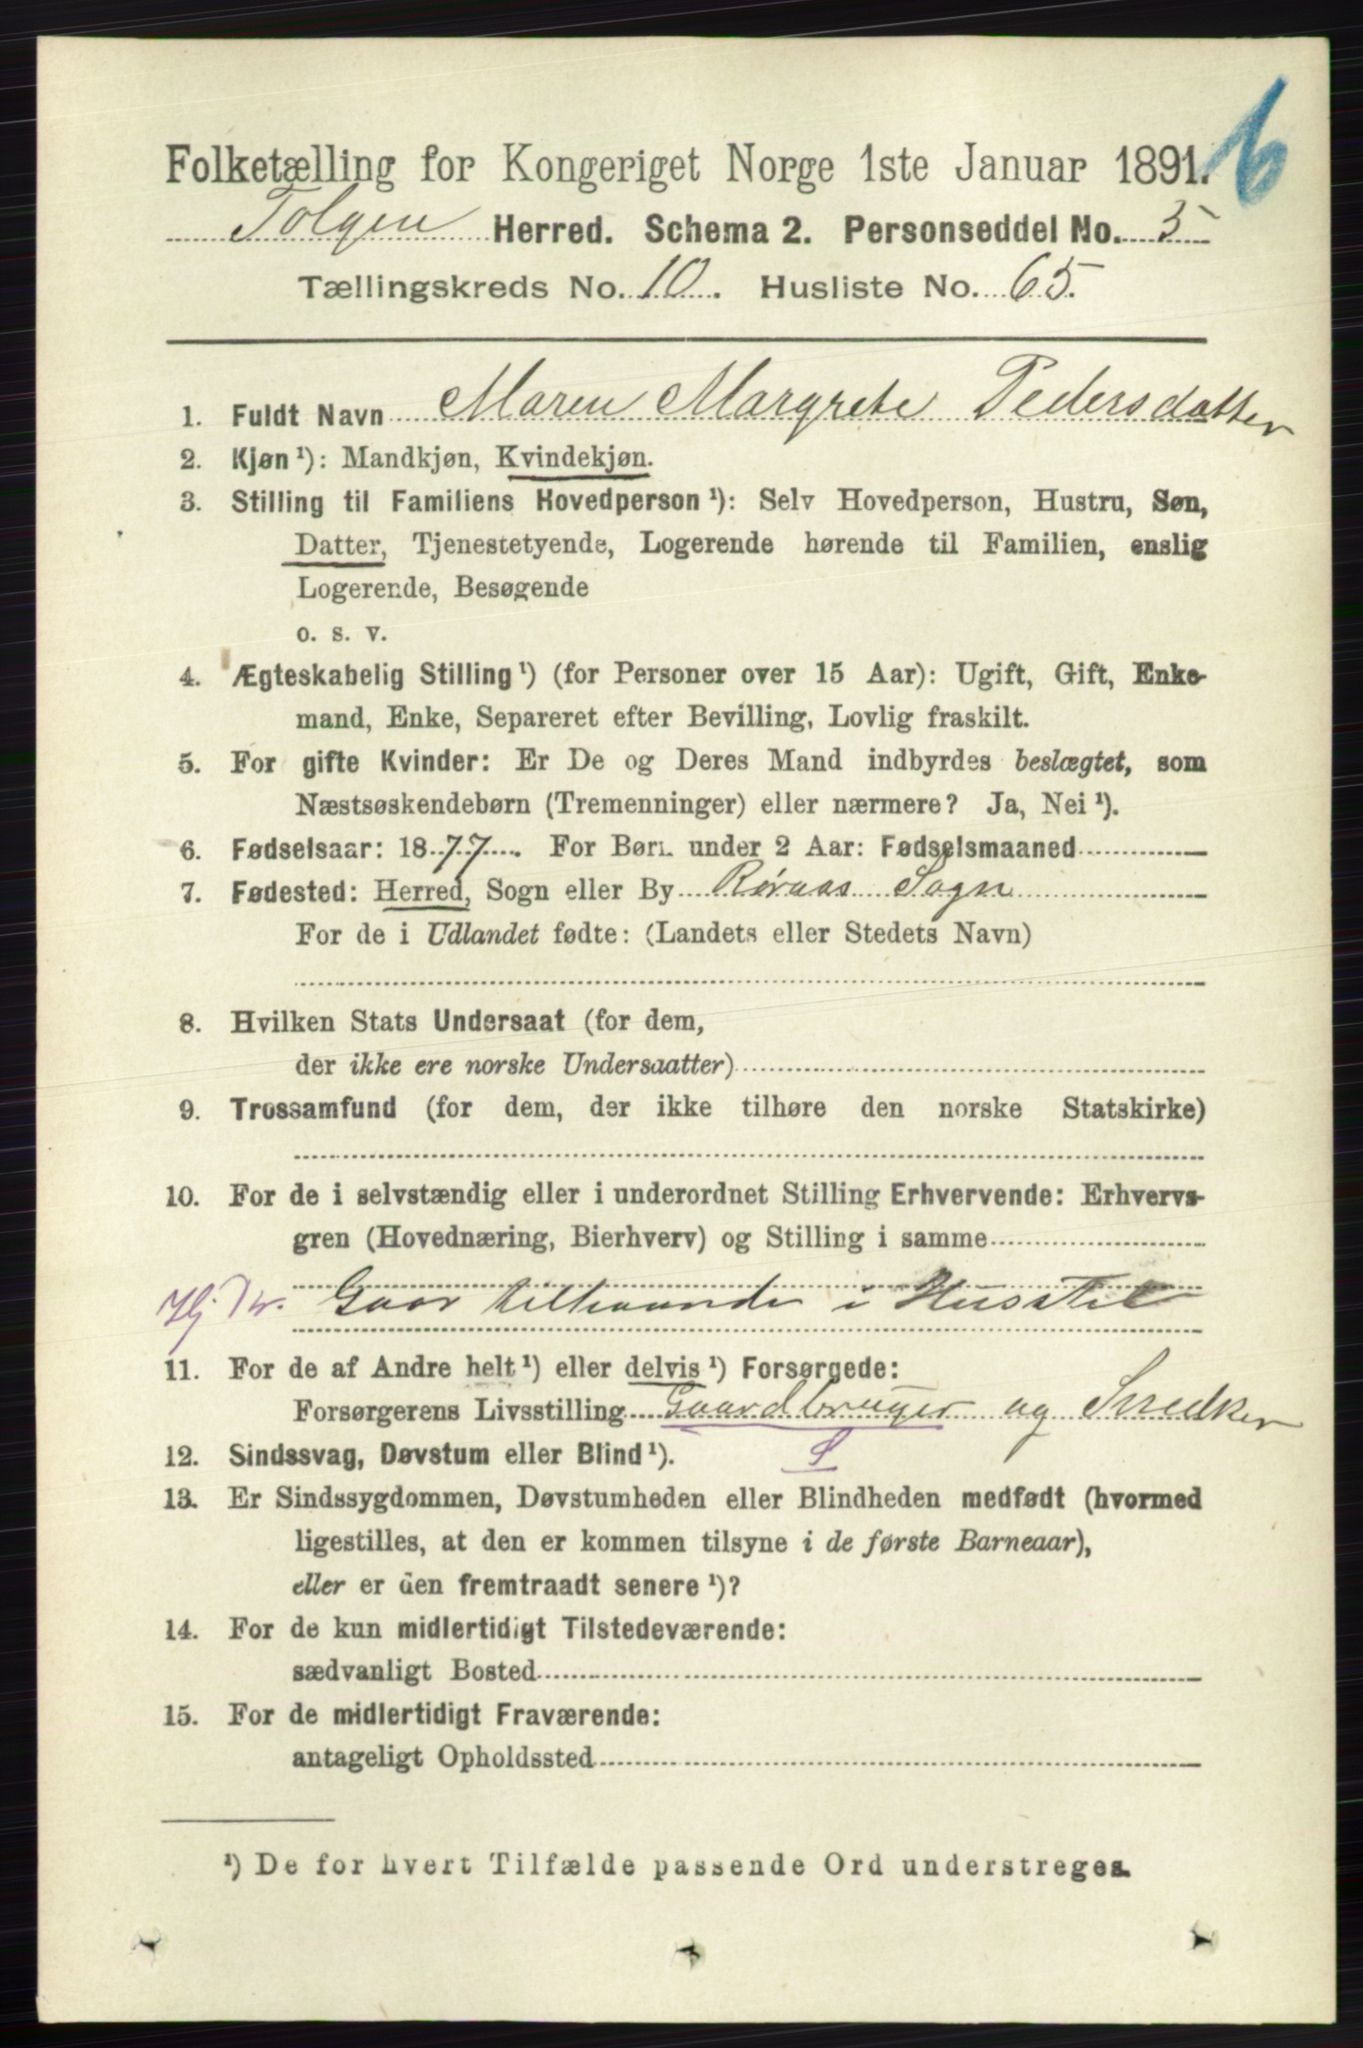 6
Folketælling for Kongeriget Norge 1ste Januar 1891.
Tolgen Herred. Schema 2. Personseddel No. 5
Tællingskreds No. 10. Husliste No. 65.
1. Fuldt Navn Maren Margrete Pedersdatter
2. Kjøn ¹): Mandkjøn, Kvindekjøn.
3. Stilling til Familiens Hovedperson ¹): Selv Hovedperson, Hustru, Søn,
Datter, Tjenestetyende, Logerende hørende til Familien, enslig
Logerende, Besøgende
o. s. v.
4. Ægteskabelig Stilling ¹) (for Personer over 15 Aar): Ugift, Gift, Enke-
mand, Enke, Separeret efter Bevilling, Lovlig fraskilt.
5. For gifte Kvinder: Er De og Deres Mand indbyrdes beslægtet, som
Næstsøskendebørn (Tremenninger) eller nærmere? Ja, Nei ¹).
6. Fødselsaar: 1877. For Børn under 2 Aar: Fødselsmaaned
7. Fødested: Herred, Sogn eller By Røraas Sogn
For de i Udlandet fødte: (Landets eller Stedets Navn)
8. Hvilken Stats Undersaat (for dem,
der ikke ere norske Undersaatter)
9. Trossamfund (for dem, der ikke tilhøre den norske Statskirke)
10. For de i selvstændig eller i underordnet Stilling Erhvervende: Erhvervs-
gren (Hovednæring, Bierhverv) og Stilling i samme
Gaar tilhaande i Husstel
11. For de af Andre helt ¹) eller delvis ¹) Forsørgede:
Forsørgerens Livsstilling Gaardbruger og Snedker
S
12. Sindssvag, Døvstum eller Blind ¹).
13. Er Sindssygdommen, Døvstumheden eller Blindheden medfødt (hvormed
ligestilles, at den er kommen tilsyne i de første Barneaar),
eller er den fremtraadt senere ¹)?
14. For de kun midlertidigt Tilstedeværende:
sædvanligt Bosted
15. For de midlertidigt Fraværende:
antageligt Opholdssted
¹) De for hvert Tilfælde passende Ord understreges.